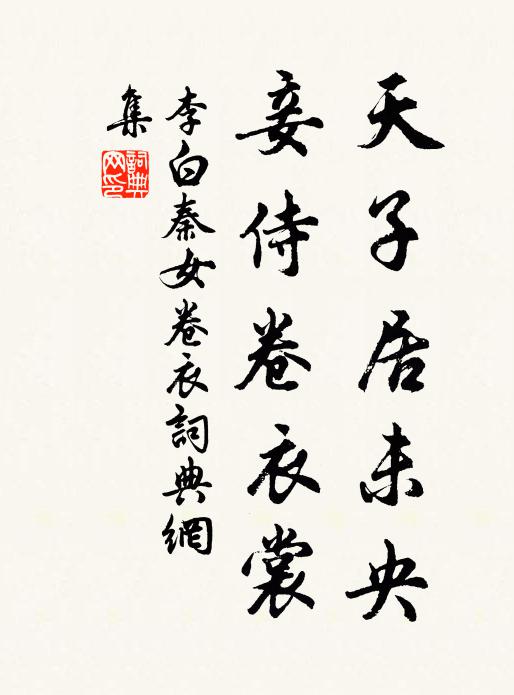 天子居未央
妾侍卷衣裳
李白秦女卷衣詞典網
集
詞典
网印